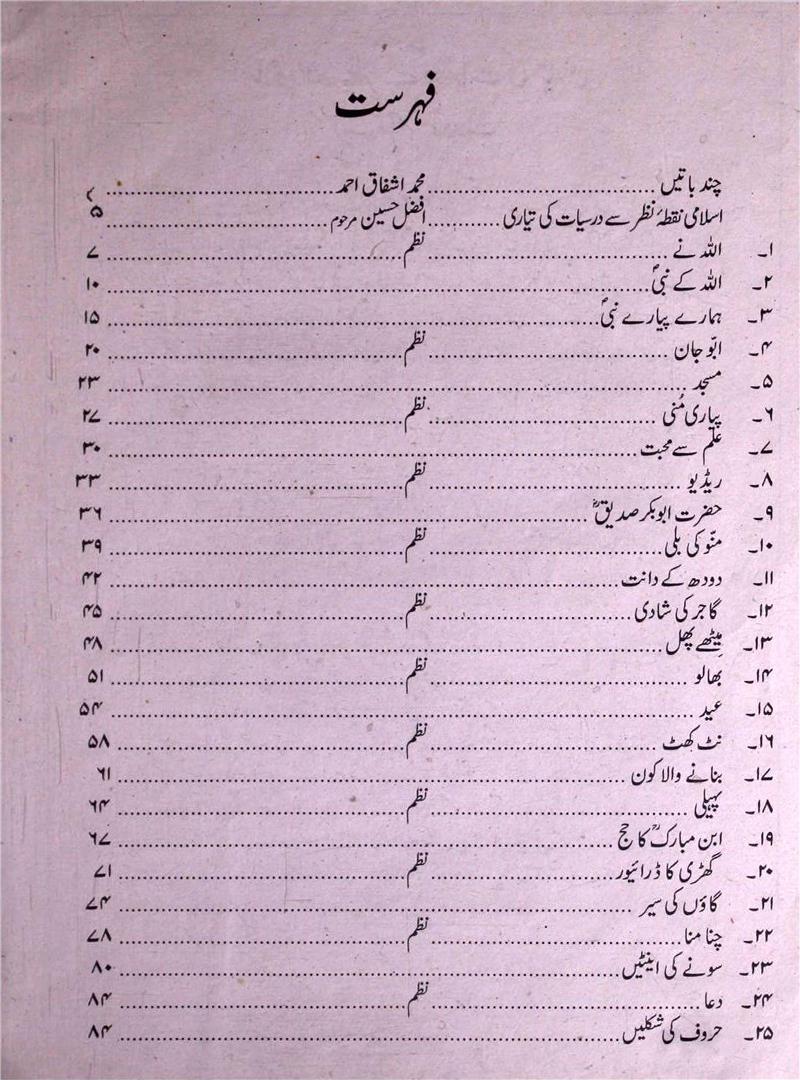 فہرست
چند باتیں ........ محمد اشفاق احمد ........
اسلامی نقطۂ نظر سے درسیات کی تیاری ........ افضل حسین مرحوم ........ ۵
۱۔ اللہ نے ........ نظم ........ ۷
۲۔ اللہ کے نبیؐ ........ ۱۰
۳۔ ہمارے پیارے نبیؐ ........ ۱۵
۴۔ ابّو جان ........ نظم ........ ۲۰
۵۔ مسجد ........ ۲۳
۶۔ پیاری مُنی ........ نظم ........ ۲۷
۷۔ علم سے محبت ........ ۳۰
۸۔ ریڈیو ........ نظم ........ ۳۳
۹۔ حضرت ابوبکر صدیقؓ ........ ۳۶
۱۰۔ منّو کی بلی ........ نظم ........ ۳۹
۱۱۔ دودھ کے دانت ........ ۴۲
۱۲۔ گاجر کی شادی ........ نظم ........ ۴۵
۱۳۔ میٹھے پھل ........ ۴۸
۱۴۔ بھالو ........ نظم ........ ۵۱
۱۵۔ عید ........ ۵۴
۱۶۔ نٹ کھٹ ........ نظم ........ ۵۸
۱۷۔ بنانے والا کون ........ ۶۱
۱۸۔ پہیلی ........ نظم ........ ۶۴
۱۹۔ ابن مبارکؒ کا حج ........ ۶۷
۲۰۔ گھڑی کا ڈرائیور ........ نظم ........ ۷۱
۲۱۔ گاؤں کی سیر ........ ۷۴
۲۲۔ چنا منا ........ نظم ........ ۷۸
۲۳۔ سونے کی اینٹیں ........ ۸۰
۲۴۔ دعا ........ نظم ........ ۸۴
۲۵۔ حروف کی شکلیں ........ ۸۴